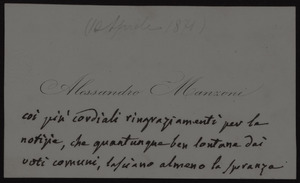 Alessandro Manzoni
coi più cordiali ringraziamenti per la
notizia, che quantunque ben lontana dai
voti comuni, lasciano almeno la speranza